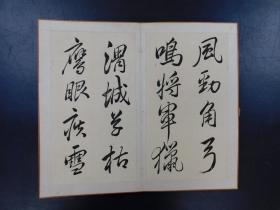 風勁角弓
鳴將軍獵
渭城草枯
鷹眼疾雪